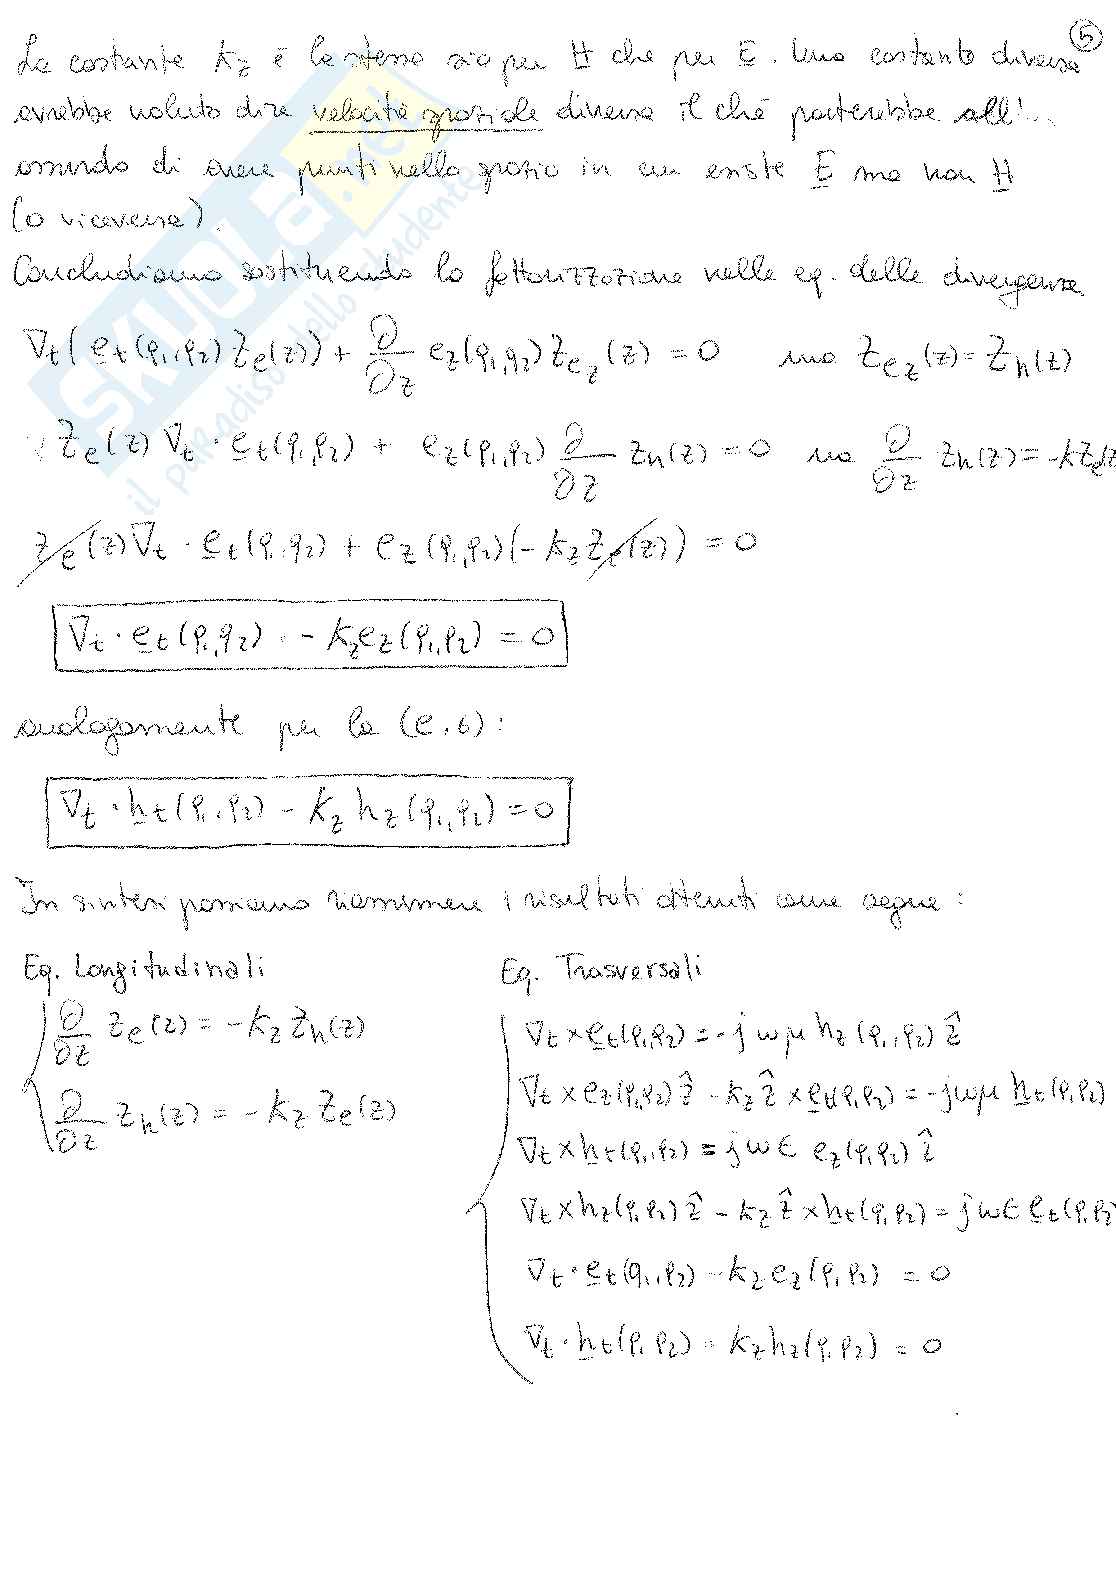 5
La costante kz è la stessa sia per H che per E. Una costante diversa
avrebbe voluto dire velocità spaziale diversa il che porterebbe all'..
assurdo di avere punti nello spazio in cui esiste E ma non H
(o viceversa).
Concludiamo sostituendo la fattorizzazione nelle eq. delle divergenze
∇t(et(q1,q2)Ze(z)) + ∂/∂z ez(q1,q2)Zez(z) = 0 ma Zez(z) = Zh(z)
Ze(z)∇t·et(q1,q2) + ez(q1,q2) ∂/∂z Zh(z) = 0 ma ∂/∂z Zh(z) = -kZe(z
Ze(z)∇t·et(q1,q2) + ez(q1,q2)(-kzZe(z)) = 0
∇t·et(q1,q2) - kzez(q1,q2) = 0
analogamente per la (e.6):
∇t·ht(q1,q2) - kzhz(q1,q2) = 0
In sintesi possiamo riassumere i risultati ottenuti come segue:
Eq. Longitudinali
∂/∂z Ze(z) = -kzZh(z)
∂/∂z Zh(z) = -kzZe(z)
Eq. Trasversali
∇t×et(q1,q2) = -jωμhz(q1,q2)ẑ
∇t×ez(q1,q2)ẑ - kzẑ×et(q1,q2) = -jωμht(q1,q2)
∇t×ht(q1,q2) = jωϵ ez(q1,q2)ẑ
∇t×hz(q1,q2)ẑ - kzẑ×ht(q1,q2) = jωϵ et(q1,q2
∇t·et(q1,q2) - kzez(q1,q2) = 0
∇t·ht(q1,q2) - kzhz(q1,q2) = 0
SKUOLA.net
il paradiso dello studente